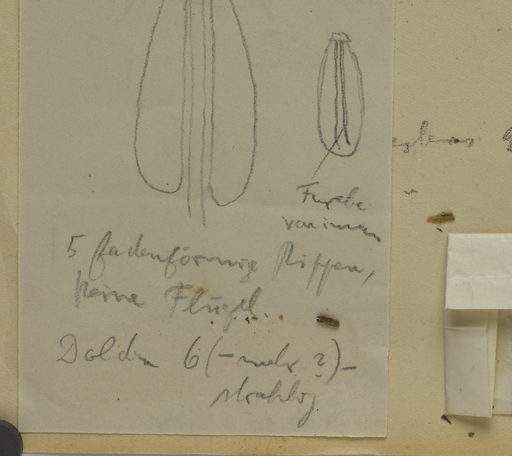 Furche
von innen
5 fadenförmige Rippen,
keine Flügel.
Dolden 6 (– mehr ?) –
strahlig